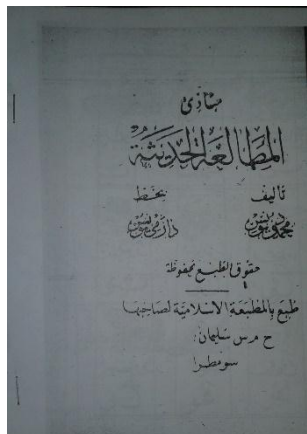 مبادئ
المطالعة الحديثة
تأليف بخط
محمود يونس دارمي يونس
حقوق الطبع محفوظة
طبع بالمطبعة الاسلامية لصاحبها
ح م س سليمان
سومطرا